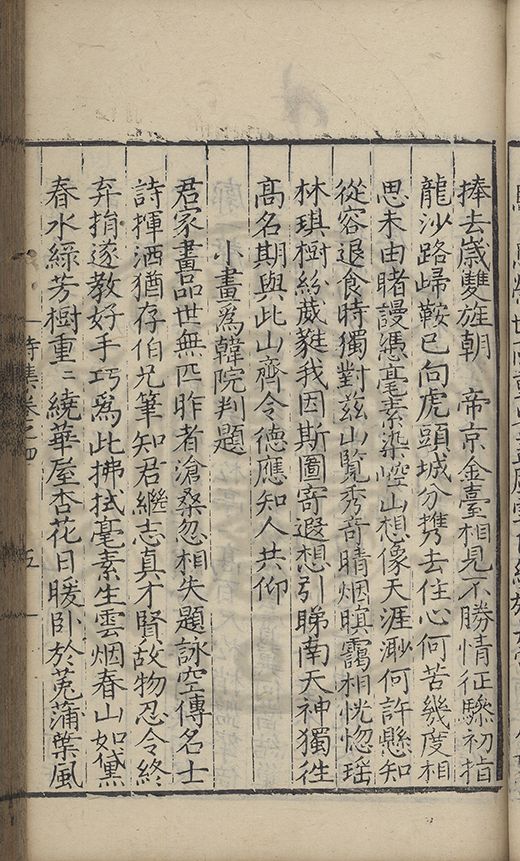 捧去歲雙旌朝　帝京金臺相見不勝情征驂初指
龍沙路歸鞍已向虎頭城分携去住心何苦幾度相
思未由睹謾憑毫素染崆山想像天涯渺何許懸知
從容退食時獨對茲山覽秀奇晴烟暝靄相恍惚瑶
林琪樹紛葳蕤我因斯圖寄遐想引睇南天神獨徃
高名期與此山齊令德應知人共仰
小畫爲韓院判題
君家畫品世無匹昨者滄桑忽相失題詠空傳名士
詩揮洒猶存伯兄筆知君繼志真才賢故物忍令終
弃捐遂教好手巧爲此拂拭毫素生雲烟春山如黛
春水綠芳樹重〻繞華屋杏花日暖卧於菟蒲葉風
詩集卷之四
五